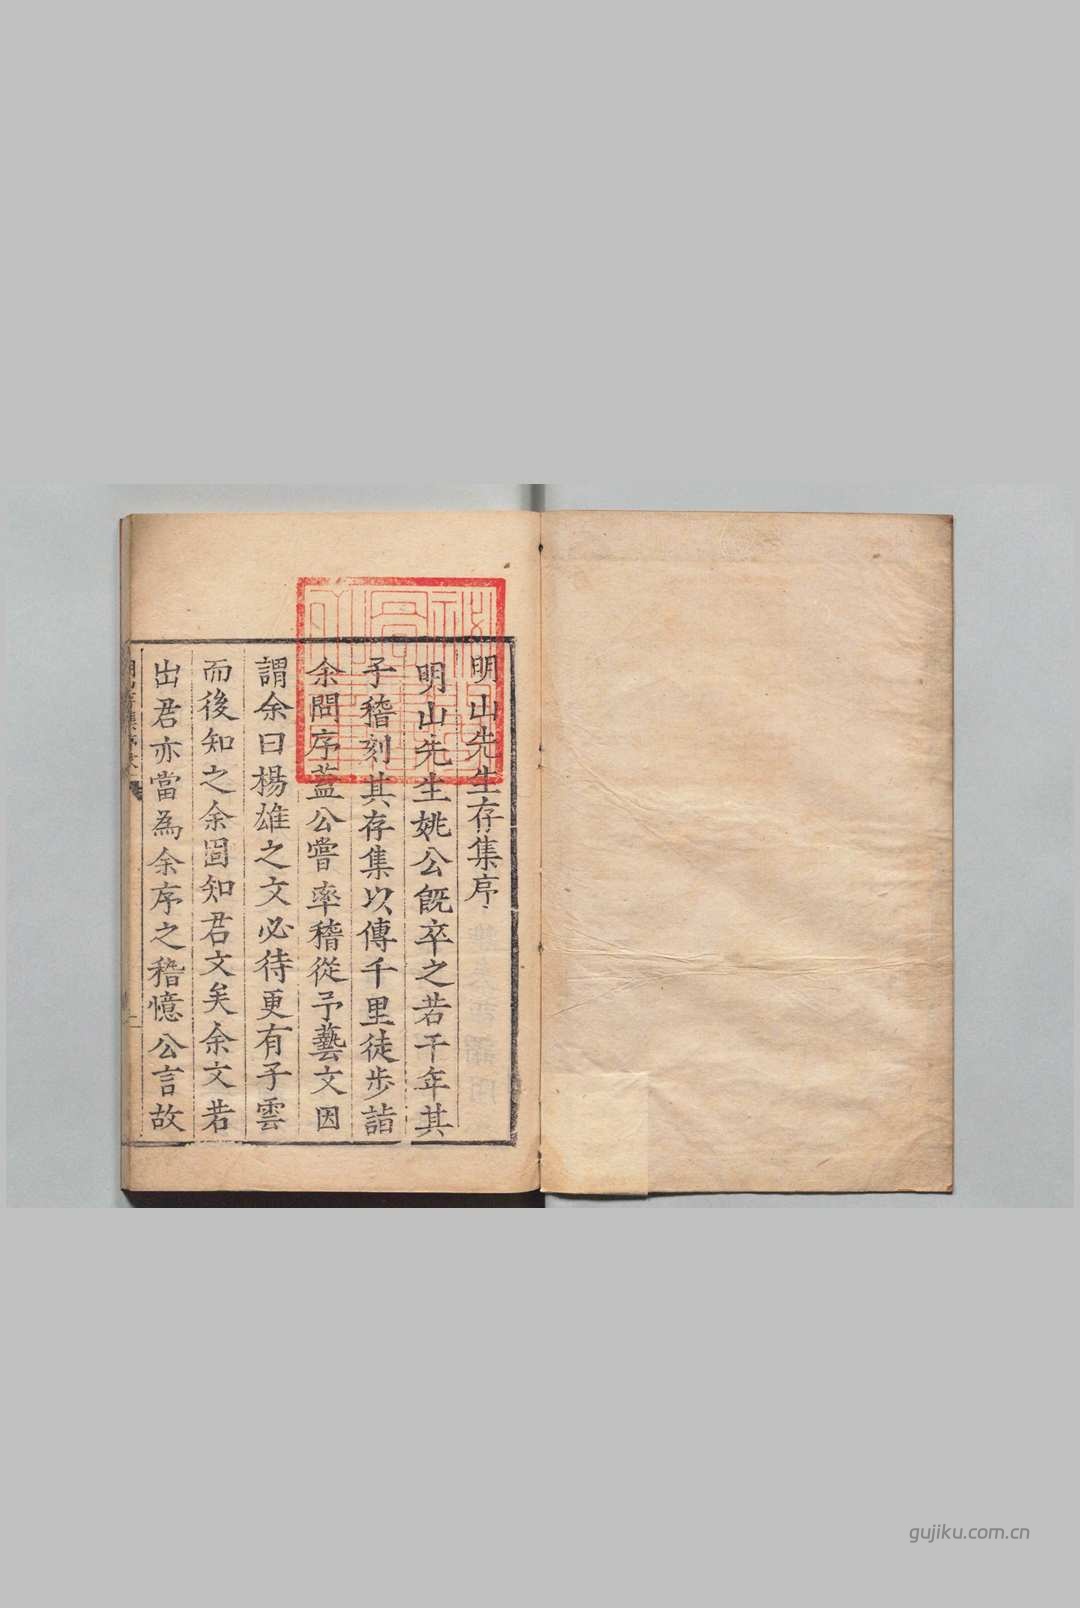 明山先生存集序
明山先生姚公旣卒之若干年其
子稽刻其存集以傳千里徒步詣
余問序蓋公嘗率稽從予藝文因
謂余曰楊雄之文必待更有子雲
而後知之余固知君文矣余文若
出君亦當為余序之稽憶公言故
gujiku.com.cn